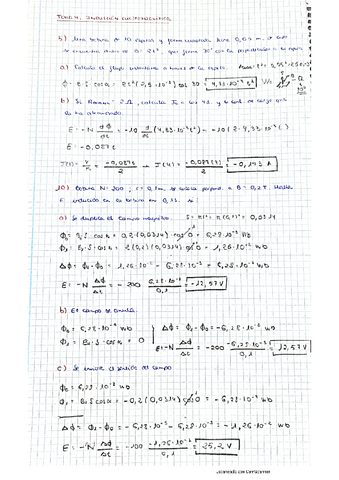 TEMA 4. INDUCCIÓN ELECTROMAGNÉTICA
5) Una bobina de 10 espiras y forma cuadrada, lado 0,05 m,
se encuentra dentro de B = 2t², que forma 30° con la perpendicular a la espira
a) Calcula el flujo a través de la espira.
b) Si Rbobina = 2 Ω, calcula I a los 4 s. y la cantidad de carga que
la ha atravesado.
E = -N dφ/dt = -10 d/dt (4,33·10⁻³ t²) = -10 (2·4,33·10⁻³ t)
E = -0,087t
I(t) = = -0,087t / 2 → I(4) = -0,087(4) / 2 = -0,173 A
10) Bobina N = 200; r = 0,1 m, se coloca perpend. a B = 0,2 T. Halla
E inducida en la bobina en 0,1 s. si
a) Se duplica el campo magnético. S = πr² = π(0,1)² = 0,0314
φ₀ = B₀·S·cos α = 0,2 (0,0314) cos 0 = 6,28·10⁻³ Wb
φ₁ = B₁·S·cos α = 2(0,2)(0,0314) cos 0 = 1,26·10⁻² Wb
Δφ = φ₁ - φ₀ = 1,26·10⁻² - 6,28·10⁻³ = 6,28·10⁻³ Wb
E = -N Δφ/Δt = -200 6,28·10⁻³ / 0,1 = -12,57 V
b) El campo se anula.
φ₀ = 6,28·10⁻³ Wb Δφ = φ₁ - φ₀ = -6,28·10⁻³ Wb
φ₁ = B₁·S·cos α = 0 E = -N Δφ/Δt = -200 -6,28·10⁻³ / 0,1 = 12,57 V
c) Se invierte el sentido del campo
φ₀ = 6,28·10⁻³ Wb
φ₁ = B₁S cos α = -0,2 (0,0314) cos 0 = -6,28·10⁻³ Wb
Δφ = φ₁ - φ₀ = -6,28·10⁻³ - 6,28·10⁻³ = -1,26·10⁻² Wb
E = -N Δφ/Δt = -200 -1,26·10⁻² / 0,1 = 25,2 V
Escaneado con CamScanner